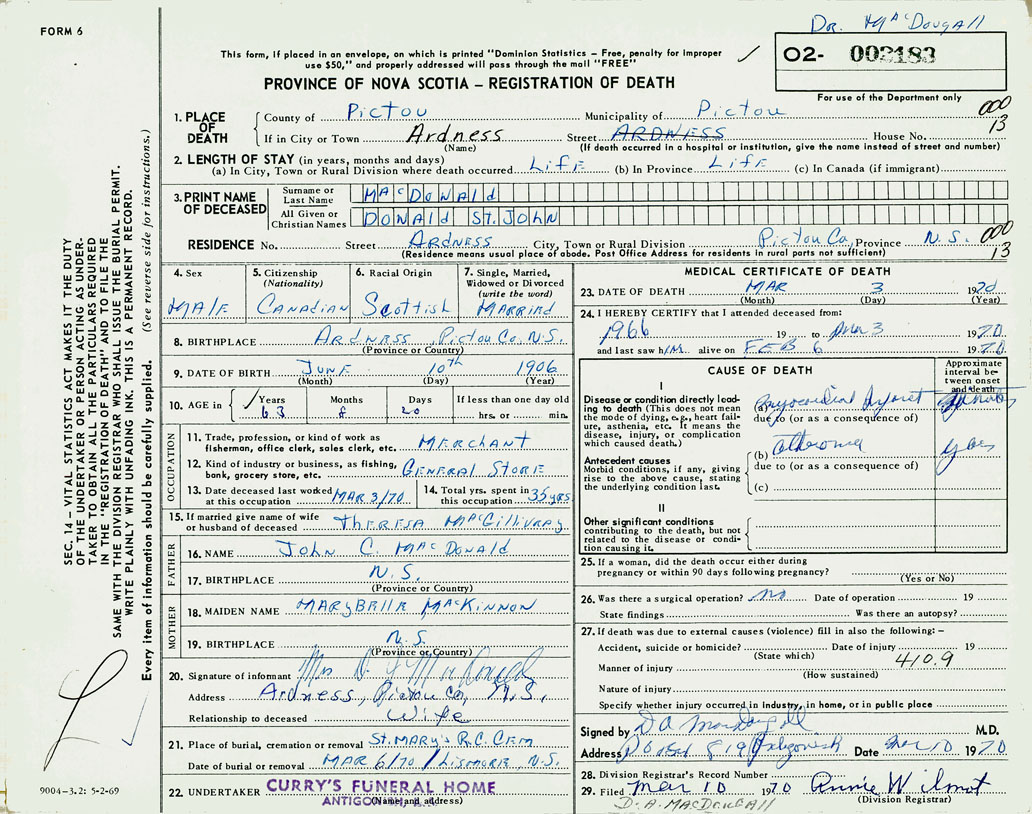 FORM 6
Dr. MacDougall
This form, if placed in an envelope, on which is printed "Dominion Statistics – Free, penalty for improper
use $50," and properly addressed will pass through the mail "FREE"
O2- 002183
For use of the Department only
PROVINCE OF NOVA SCOTIA – REGISTRATION OF DEATH
1. PLACE OF DEATH
County of Pictou Municipality of Pictou 000
If in City or Town Ardness Street ARDNESS House No. 13
(Name) (If death occurred in a hospital or institution, give the name instead of street and number)
2. LENGTH OF STAY (in years, months and days)
(a) In City, Town or Rural Division where death occurred LifE (b) In Province LifE (c) In Canada (if immigrant)
3. PRINT NAME OF DECEASED
Surname or Last Name MACDONAld
All Given or Christian Names DONAld ST. JOHN
RESIDENCE No. Street ARDNESS City, Town or Rural Division Pictou Co, Province N.S. 000
(Residence means usual place of abode. Post Office Address for residents in rural parts not sufficient) 13
4. Sex MAlE
5. Citizenship (Nationality) CANAdIAN
6. Racial Origin Scottish
7. Single, Married, Widowed or Divorced (write the word) MARRIEd
8. BIRTHPLACE ARDNESS PictouCo. N.S.
(Province or Country)
9. DATE OF BIRTH JUNE 10th 1906
(Month) (Day) (Year)
10. AGE in Years Months Days If less than one day old
63 8 20 hrs. or min.
OCCUPATION
11. Trade, profession, or kind of work as
fisherman, office clerk, sales clerk, etc. MERCHANT
12. Kind of industry or business, as fishing,
bank, grocery store, etc. GENERAL STORE
13. Date deceased last worked
at this occupation MAR 3/70
14. Total yrs. spent in
this occupation 35 yRS
15. If married give name of wife
or husband of deceased THERESA MACGillivRAy
FATHER
16. NAME JOHN C. MACDONAld
17. BIRTHPLACE N.S.
(Province or Country)
MOTHER
18. MAIDEN NAME MARYBEllE MACKINNON
19. BIRTHPLACE N.S.
(Province or Country)
20. Signature of informant Mrs D
Address Ardness, Pictou Co, N.S.
Relationship to deceased Wife
21. Place of burial, cremation or removal St. MARY'S R.C. CEM
Date of burial or removal MAR 6/70 / LISMORE, N.S.
22. UNDERTAKER CURRY'S FUNERAL HOME
(Name and address)
MEDICAL CERTIFICATE OF DEATH
23. DATE OF DEATH MAR 3 1970
(Month) (Day) (Year)
24. I HEREBY CERTIFY that I attended deceased from:
1966 19 to Mar 3 1970
and last saw him alive on FEB 6 1970
CAUSE OF DEATH
Approximate interval between onset and death
I
Disease or condition directly leading to death (This does not mean the mode of dying, e.g., heart failure, asthenia, etc. It means the disease, injury, or complication which caused death.)
(a) Myocardial Infarct
due to (or as a consequence of)
Antecedent causes
Morbid conditions, if any, giving rise to the above cause, stating the underlying condition last.
(b) Atheroma yrs
due to (or as a consequence of)
(c)
II
Other significant conditions
contributing to the death, but not related to the disease or condition causing it.
25. If a woman, did the death occur either during
pregnancy or within 90 days following pregnancy?
(Yes or No)
26. Was there a surgical operation? no Date of operation 19
State findings Was there an autopsy?
27. If death was due to external causes (violence) fill in also the following: –
Accident, suicide or homicide? Date of injury 19
(State which) 410.9
Manner of injury
(How sustained)
Nature of injury
Specify whether injury occurred in industry, in home, or in public place
Signed by D A MacDougall M.D.
Address P O Box 819 Antigonish Date Mar 10 1970
28. Division Registrar's Record Number
29. Filed Mar 10 1970 Annie Wilmot
(Division Registrar)
D. A. MACDOUGALL
SEC. 14 – VITAL STATISTICS ACT MAKES IT THE DUTY
OF THE UNDERTAKER OR PERSON ACTING AS UNDER-
TAKER TO OBTAIN ALL THE PARTICULARS REQUIRED
IN THE "REGISTRATION OF DEATH" AND TO FILE THE
SAME WITH THE DIVISION REGISTRAR WHO SHALL ISSUE THE BURIAL PERMIT.
WRITE PLAINLY WITH UNFADING INK. THIS IS A PERMANENT RECORD.
Every item of information should be carefully supplied. (See reverse side for instructions.)
9004-3.2: 5-2-69